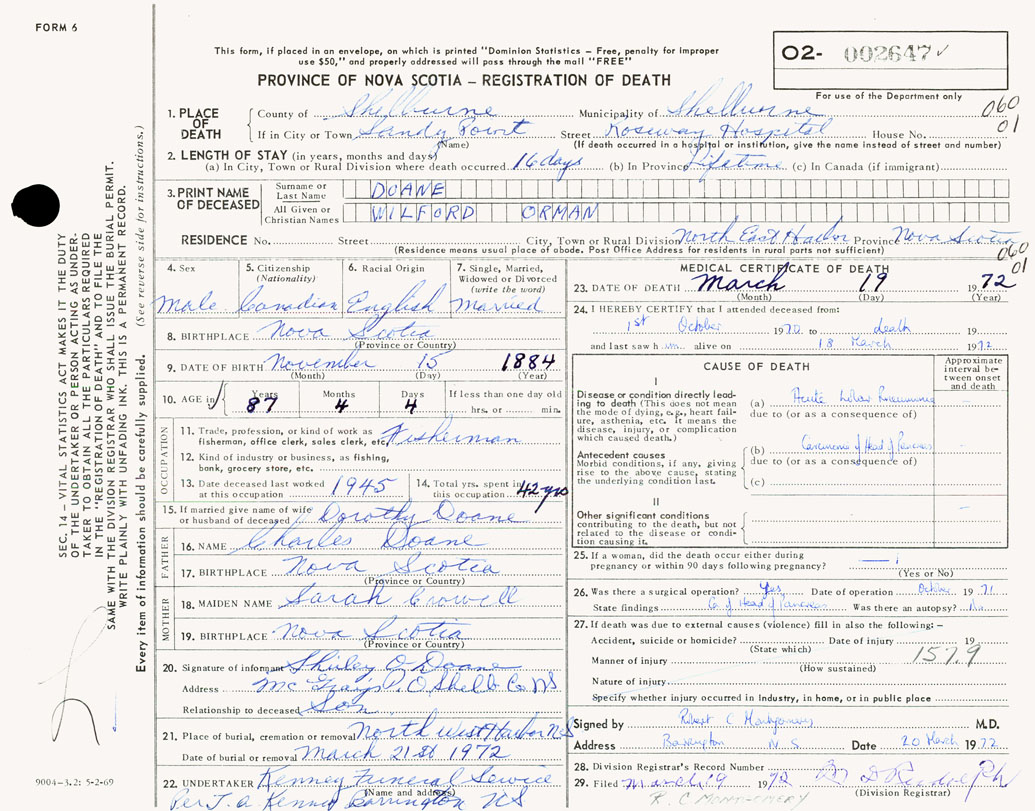 FORM 6
This form, if placed in an envelope, on which is printed "Dominion Statistics – Free, penalty for improper
use $50," and properly addressed will pass through the mail "FREE"
PROVINCE OF NOVA SCOTIA – REGISTRATION OF DEATH
O2- 002647 ✓
For use of the Department only
060
01
1. PLACE OF DEATH
County of Shelburne Municipality of Shelburne
If in City or Town Sandy Point Street Roseway Hospital House No.
(Name) (If death occurred in a hospital or institution, give the name instead of street and number)
2. LENGTH OF STAY (in years, months and days)
(a) In City, Town or Rural Division where death occurred 16 days (b) In Province Lifetime (c) In Canada (if immigrant)
3. PRINT NAME OF DECEASED
Surname or Last Name DOANE
All Given or Christian Names WILFORD ORMAN
RESIDENCE No. Street City, Town or Rural Division North East Harbor Province Nova Scotia
(Residence means usual place of abode. Post Office Address for residents in rural parts not sufficient)
060
01
4. Sex Male
5. Citizenship (Nationality) Canadian
6. Racial Origin English
7. Single, Married, Widowed or Divorced (write the word) Married
8. BIRTHPLACE Nova Scotia
(Province or Country)
9. DATE OF BIRTH November 15 1884
(Month) (Day) (Year)
10. AGE in Years 87 Months 4 Days 4 If less than one day old hrs. or min.
OCCUPATION
11. Trade, profession, or kind of work as
fisherman, office clerk, sales clerk, etc. Fisherman
12. Kind of industry or business, as fishing,
bank, grocery store, etc.
13. Date deceased last worked at this occupation 1945
14. Total yrs. spent in this occupation 42 yrs
15. If married give name of wife
or husband of deceased Dorothy Doane
FATHER
16. NAME Charles Doane
17. BIRTHPLACE Nova Scotia
(Province or Country)
MOTHER
18. MAIDEN NAME Sarah Crowell
19. BIRTHPLACE Nova Scotia
(Province or Country)
20. Signature of informant Shirley O Doane
Address McGrays P.O Shelb Co NS
Relationship to deceased Son
21. Place of burial, cremation or removal North West Harbor N.S
Date of burial or removal March 21st 1972
22. UNDERTAKER Kenney Funeral Service
(Name and address)
Per J. A. Kenney Barrington NS
MEDICAL CERTIFICATE OF DEATH
23. DATE OF DEATH March 19 1972
(Month) (Day) (Year)
24. I HEREBY CERTIFY that I attended deceased from:
1st October 1970 to death 19
and last saw him alive on 18 March 1972
CAUSE OF DEATH
Approximate interval between onset and death
I
Disease or condition directly leading to death (This does not mean
the mode of dying, e.g., heart failure, asthenia, etc. it means the
disease, injury, or complication
which caused death.)
(a) Acute Lobar Pneumonia
due to (or as a consequence of)
Antecedent causes
Morbid conditions, if any, giving
rise to the above cause, stating
the underlying condition last.
(b) Carcinoma of Head of Pancreas
due to (or as a consequence of)
(c)
II
Other significant conditions
contributing to the death, but not
related to the disease or condition causing it.
25. If a woman, did the death occur either during
pregnancy or within 90 days following pregnancy?
(Yes or No)
26. Was there a surgical operation? Yes Date of operation October 1971
State findings Ca of Head of Pancreas Was there an autopsy? No
27. If death was due to external causes (violence) fill in also the following: –
Accident, suicide or homicide? Date of injury 19
(State which)
157.9
Manner of injury
(How sustained)
Nature of injury
Specify whether injury occurred in Industry, in home, or in public place
Signed by Robert C Montgomery M.D.
Address Barrington N.S. Date 20 March 1972
28. Division Registrar's Record Number
29. Filed March 19 1972
(Division Registrar)
R. C. MONTGOMERY
SEC. 14 – VITAL STATISTICS ACT MAKES IT THE DUTY
OF THE UNDERTAKER OR PERSON ACTING AS UNDERTAKER TO OBTAIN ALL THE PARTICULARS REQUIRED
IN THE "REGISTRATION OF DEATH" AND TO FILE THE
SAME WITH THE DIVISION REGISTRAR WHO SHALL ISSUE THE BURIAL PERMIT.
WRITE PLAINLY WITH UNFADING INK. THIS IS A PERMANENT RECORD.
Every item of information should be carefully supplied. (See reverse side for instructions.)
9004-3.2: 5-2-69